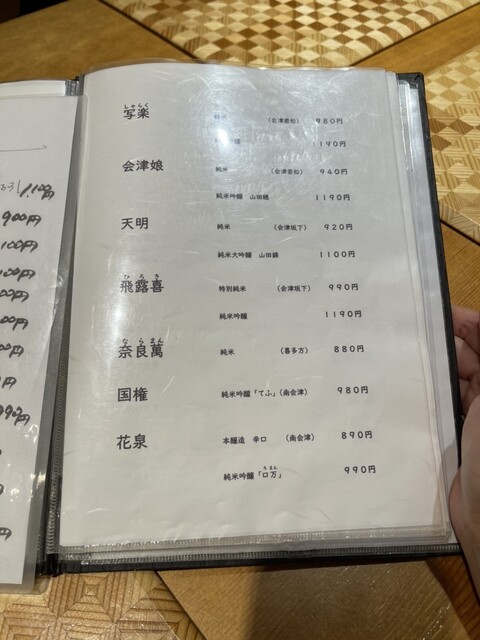 1,100円
900円
100円
100円
00円
00円
00円
円
990円
円
しゃらく
写楽 純米 (会津若松) 980円
1190円
会津娘 純米 (会津若松) 940円
純米吟醸 山田穂 1190円
天明 純米 (会津坂下) 920円
純米大吟醸 山田錦 1100円
ひろき
飛露喜 特別純米 (会津坂下) 990円
純米吟醸 1190円
ならまん
奈良萬 純米 (喜多方) 880円
国権 純米吟醸「てふ」(南会津) 980円
花泉 本醸造 辛口 (南会津) 890円
ろまん
純米吟醸「口万」 990円